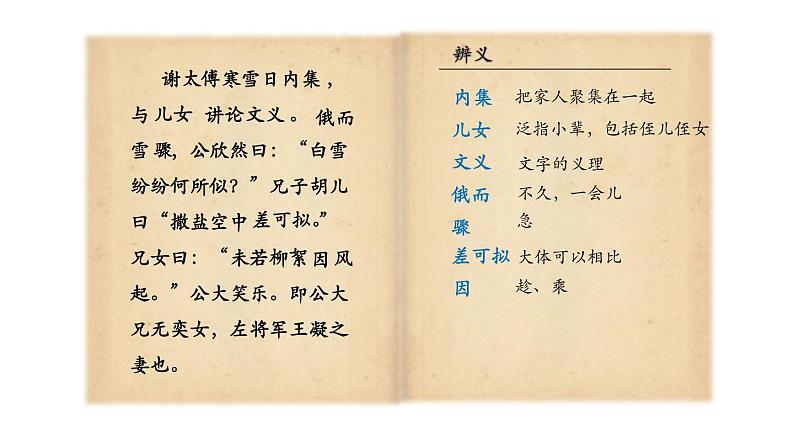 谢太傅寒雪日内集，
与儿女 讲论文义。俄而
雪骤，公欣然曰：“白雪
纷纷何所似？”兄子胡儿
曰“撒盐空中差可拟。”
兄女曰：“未若柳絮因风
起。”公大笑乐。即公大
兄无奕女，左将军王凝之
妻也。
辨义
内集 把家人聚集在一起
儿女 泛指小辈，包括侄儿侄女
文义 文字的义理
俄而 不久，一会儿
骤 急
差可拟 大体可以相比
因 趁、乘